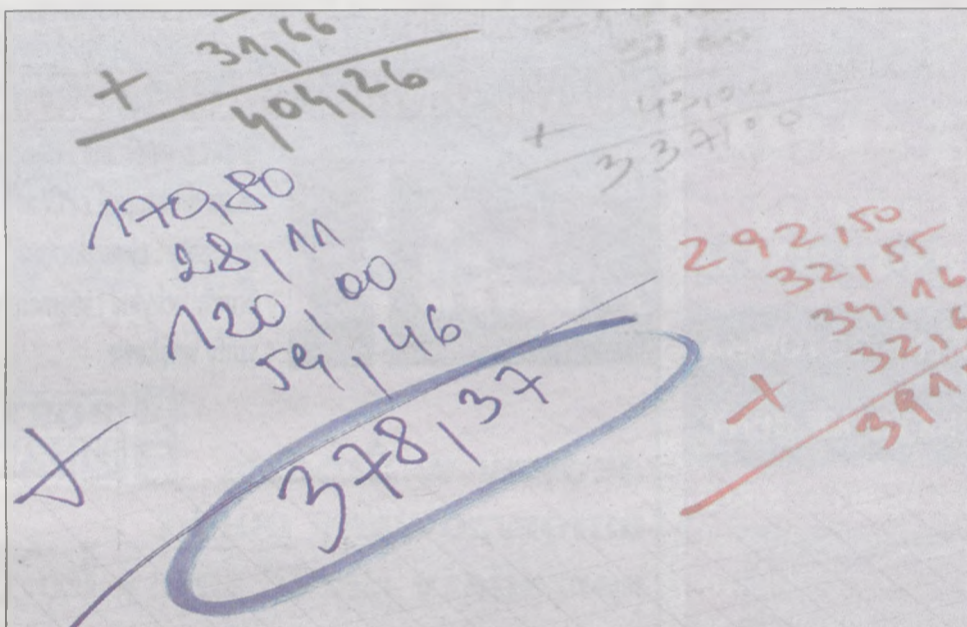 + 31,66
404,26
+ 43,00
337,00
170,80
28,11
120,00
59,46
+
378,37
292,50
32,55
34,16
32,6
+
391,